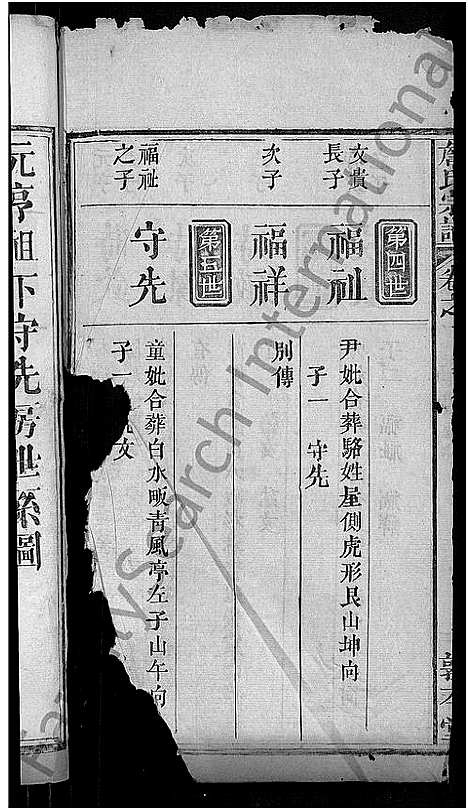 詹氏宗譜 卷之
第四世
文貴長子
福祉
尹妣合葬駱姓屋側虎形艮山坤向
子一 守先
次子
福祥
別傳
第五世
福祉之子
守先
童妣合葬白水畈青風亭左子山午向
子一 文
元亨祖下守先房世系圖
FamilySearch International